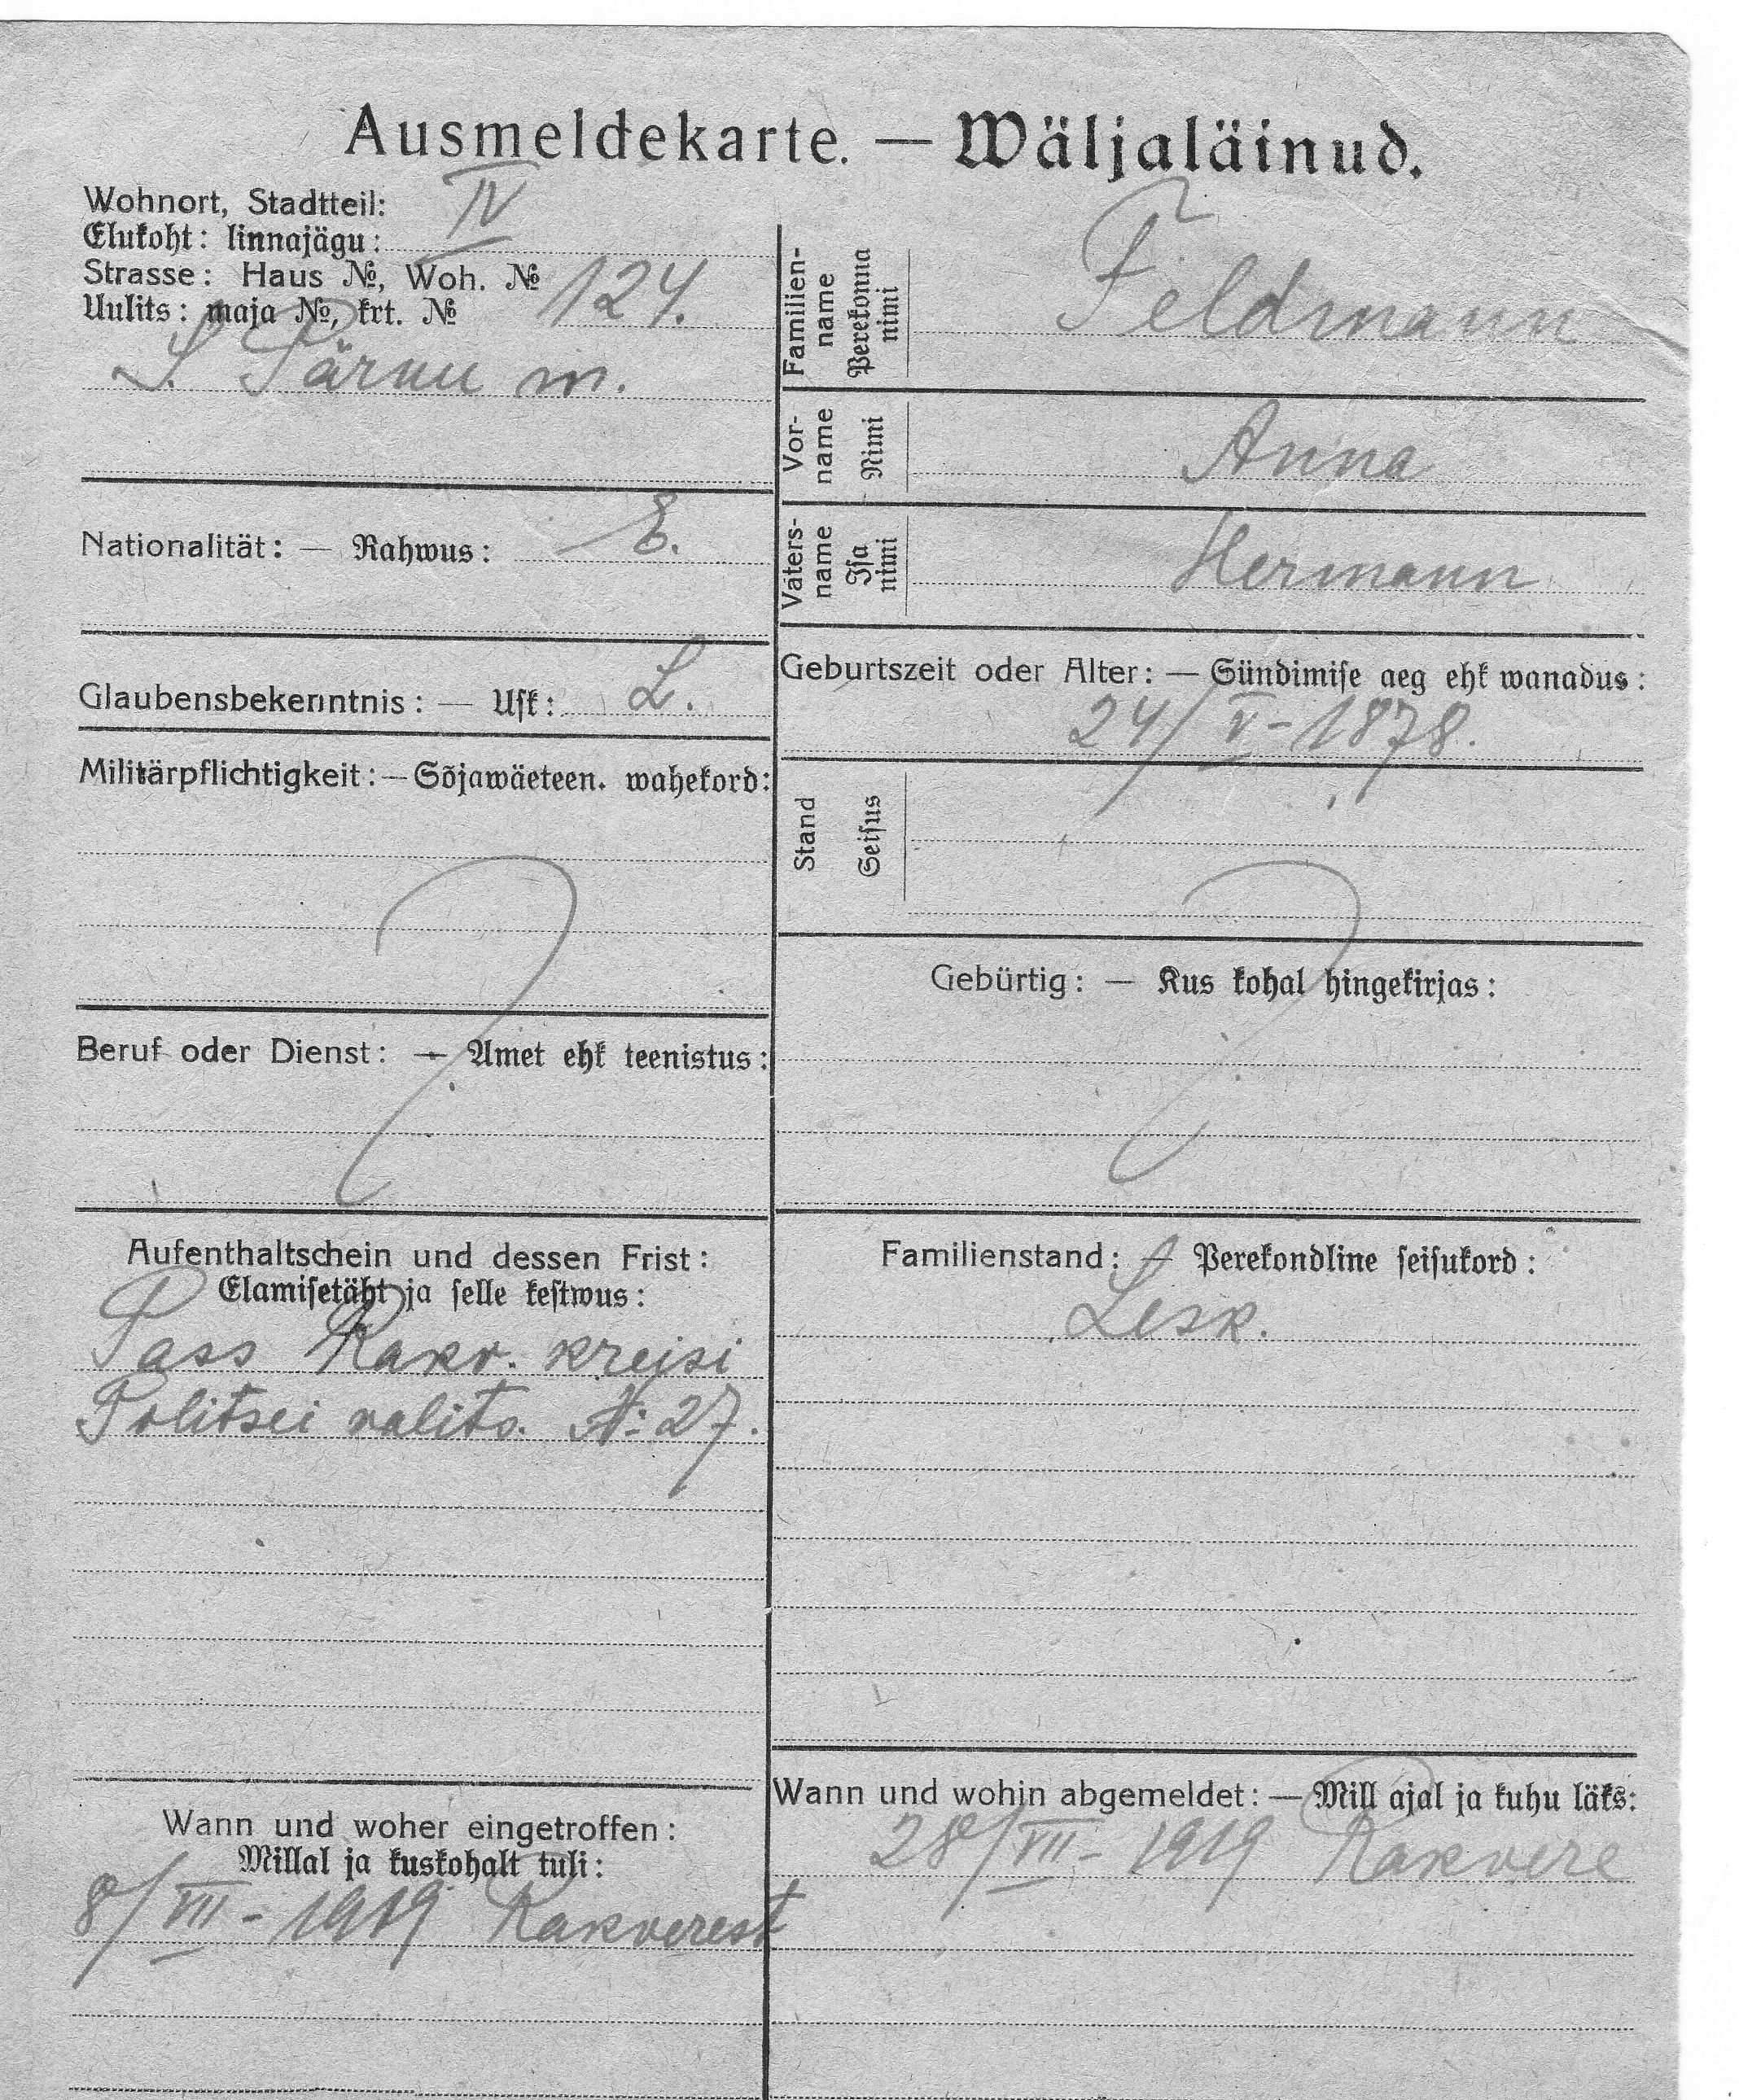 Ausmeldekarte. — Wäljaläinud.
Wohnort, Stadtteil:
Elukoht: linnajägu: IV
Strasse: Haus №, Woh. №
Uulits: maja №, krt. № 124.
S. Pärnu m.
Nationalität: — Rahwus: E.
Glaubensbekenntnis: — Usk: L.
Militärpflichtigkeit: — Sõjawäeteen. wahekord:
?
Beruf oder Dienst: — Amet ehk teenistus:
Aufenthaltschein und dessen Frist:
Elamisetäht ja selle kestwus:
Pass Rakv. kreisi
Politsei valits. №: 27.
Wann und woher eingetroffen:
Millal ja kuskohalt tuli:
8/VII - 1919 Rakverest
Familien-
name
Perekonna
nimi
Feldmann
Vor-
name
Nimi
Anna
Vaters-
name
Isa
nimi
Hermann
Geburtszeit oder Alter: — Sündimise aeg ehk wanadus:
24/V - 1878.
Stand
Seisus
?
Gebürtig: — Kus kohal hingekirjas:
Familienstand: — Perekondline seisukord:
Lesk.
Wann und wohin abgemeldet: — Mill ajal ja kuhu läks:
28/VII - 1919 Rakvere